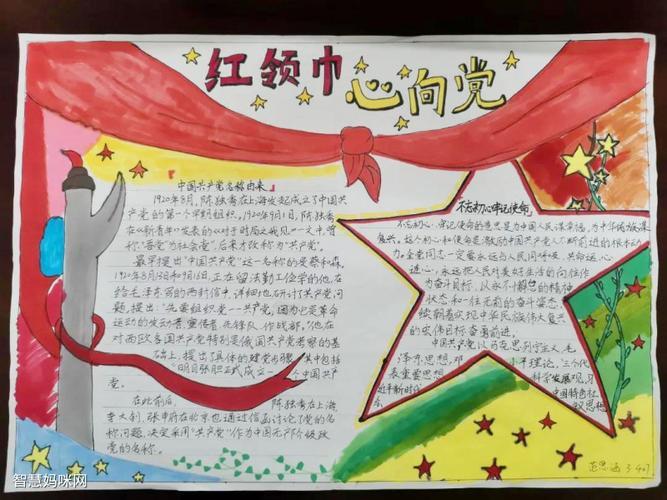 红领巾
心向党
中国共产党名称由来
1920年8月，陈独秀在上海发起成立了中国共
产党的第一个早期组织。1920年9月1日，陈独秀
在《新青年》发表的《对于时局之我见》一文中，曾
称“吾党”为“社会党”，后来才改称为“共产党”。
最早提出“中国共产党”这一名称的是蔡和森。
1920年8月13日和9月16日，正在留法勤工俭学的他，在
给毛泽东写的两封信中，详细地研讨了共产党问
题，提出：“先要组织党—共产党，因为他是革命
运动的发动者、宣传者、先锋队、作战部。”他在
对西欧各国共产党特别是俄国共产党考察的基
础上，提出了具体的建党步骤，其中包括
“明目张胆正式成立一个中国共产
党。
在此前后，陈独秀在上海，
李大钊、张申府在北京也通过信函讨论了党的名
称问题，决定采用“共产党”作为中国无产阶级政
党的名称。
不忘初心牢记使命
不忘初心，牢记使命的意思是为中国人民谋幸福，为中华民族谋
复兴。这个初心和使命是激励中国共产党人不断前进的根本动
力。全党同志一定要永远与人民同呼吸、共命运、心
连心，永远把人民对美好生活的向往作
为奋斗目标，以永不懈怠的精神
状态和一往无前的奋斗姿态，
续朝着实现中华民族伟大复兴
的宏伟目标奋勇前进。
中国共产党以马克思列宁主义、毛
泽东思想，邓小平理论，“三个代
表重要思想科学发展观，习
近平新时代中国特色社
智慧妈咪网